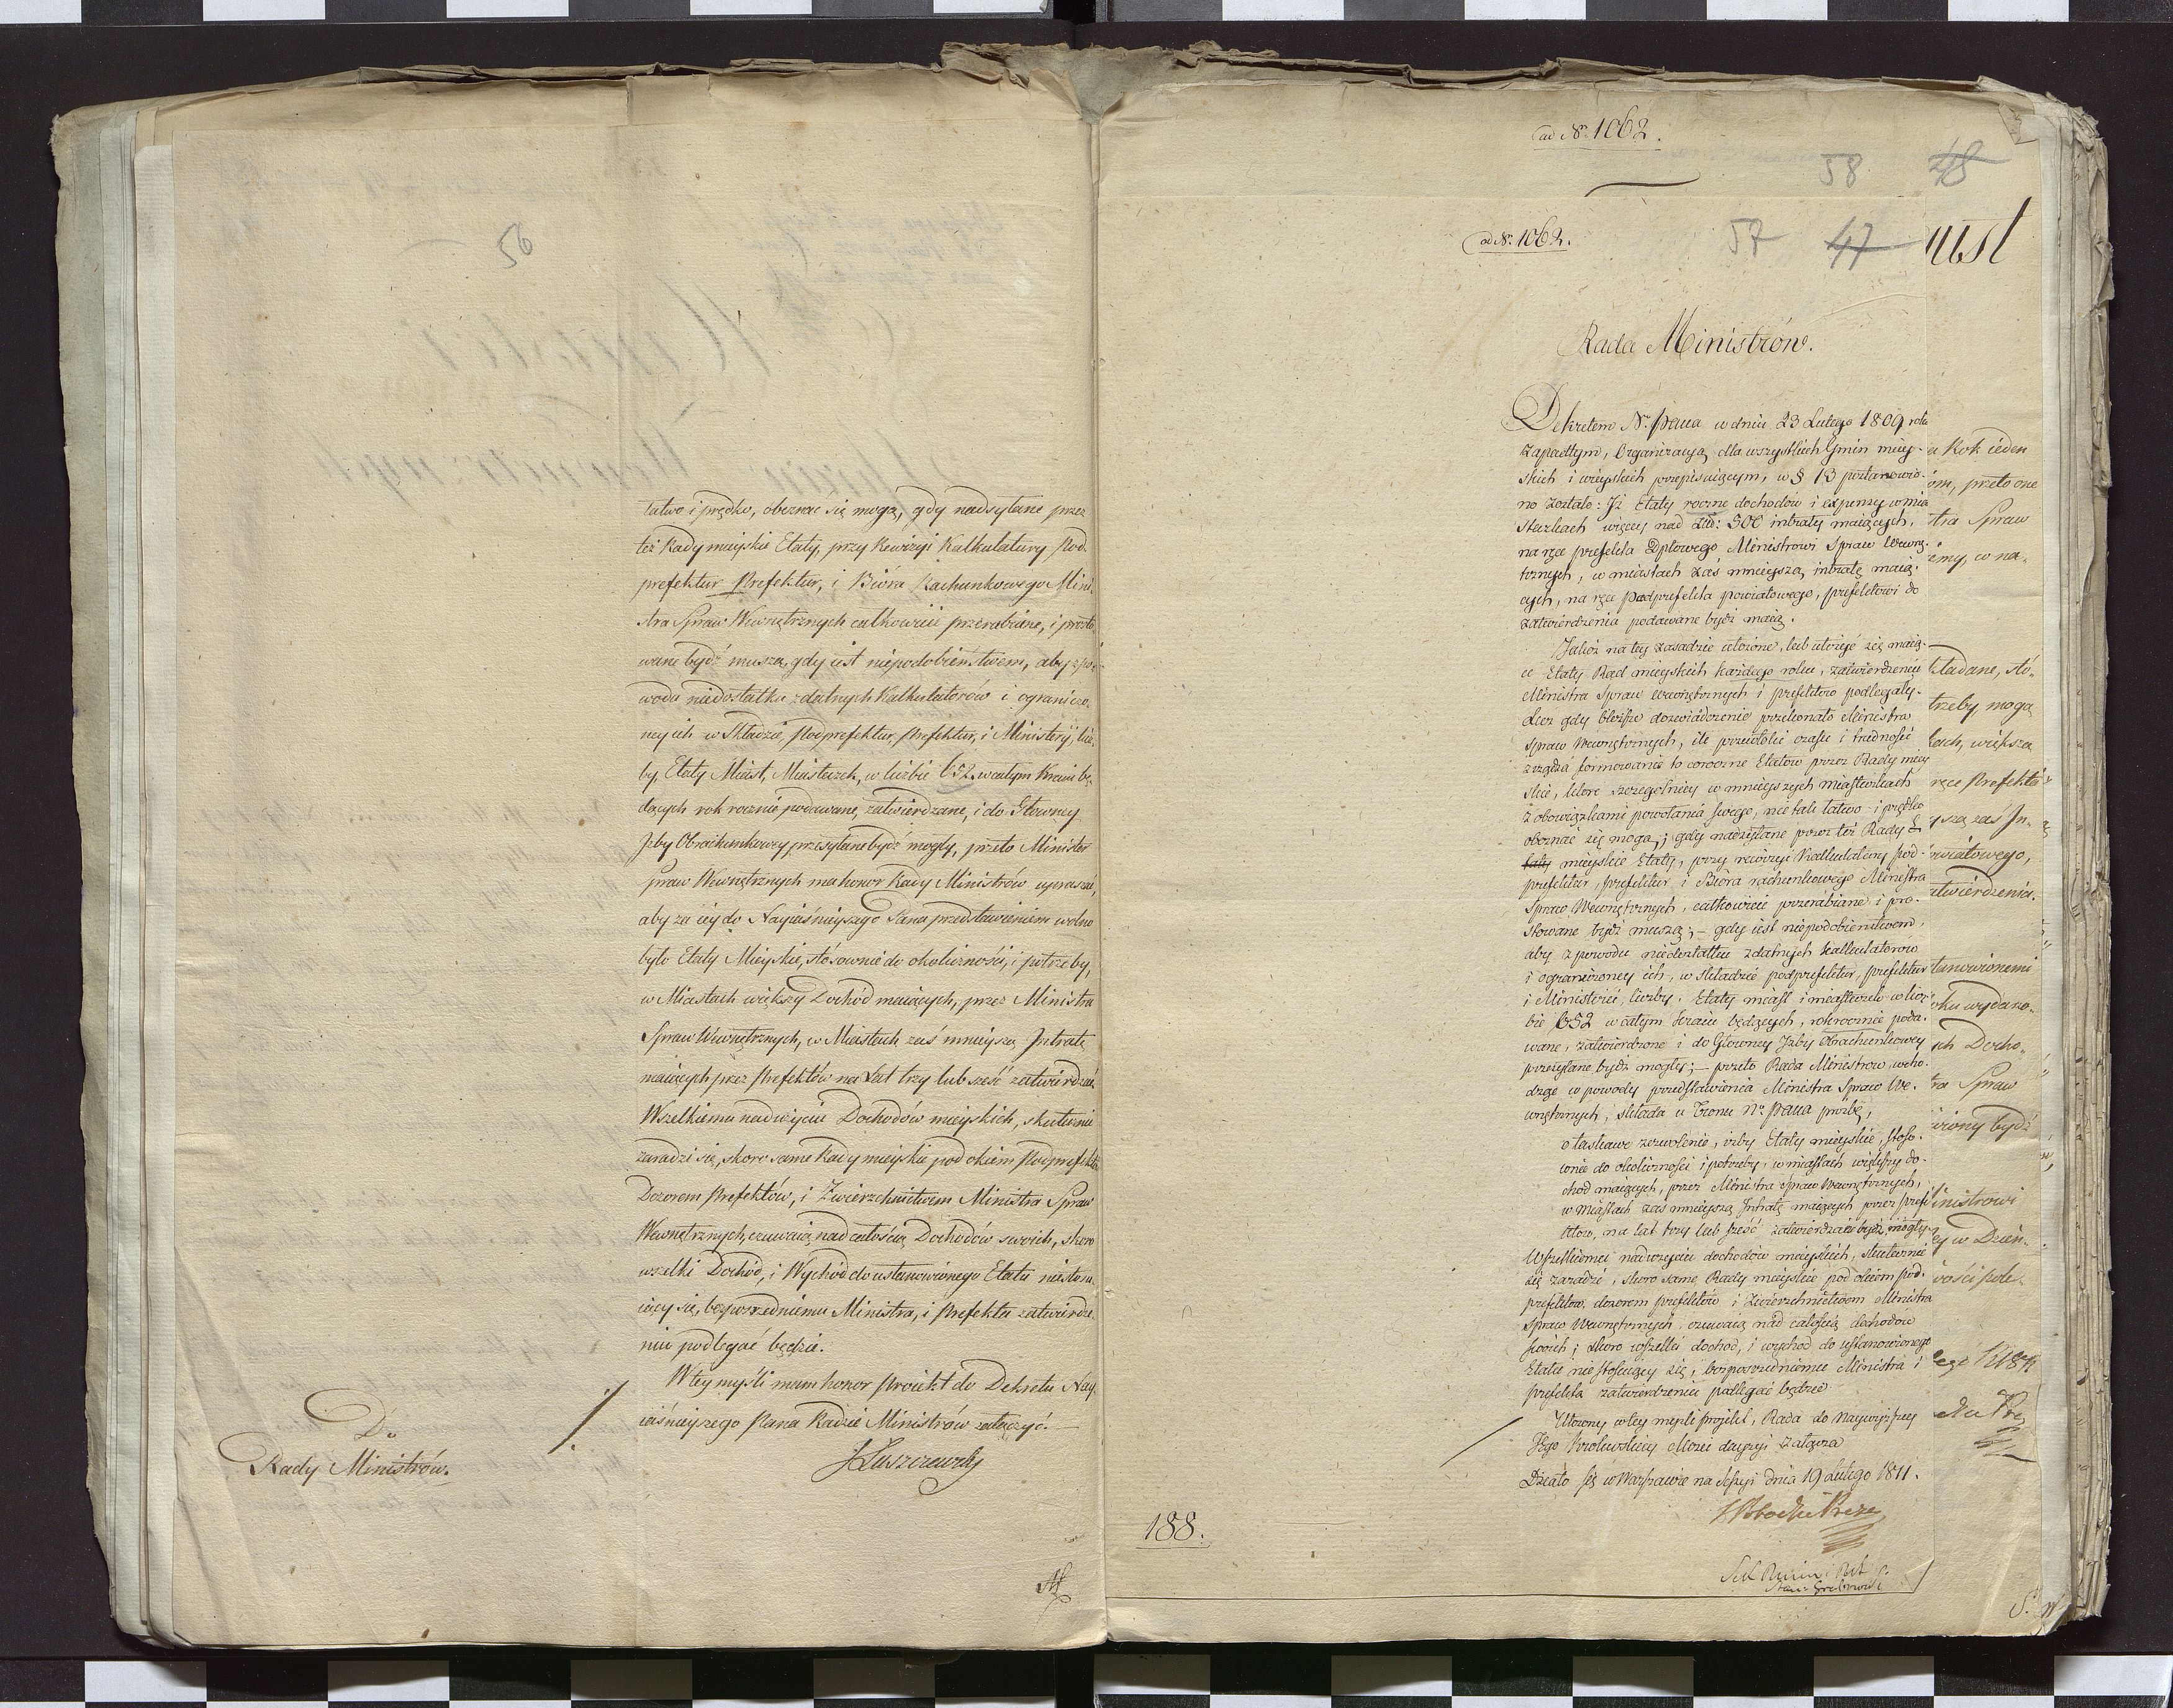 56
łatwo i prędko, obeznać się mogą, gdy nadsyłane przez
też Rady mieyskie Etaty, przy Rewizyi Kalkulatury, Pod-
prefektur Prefektur, i Bióra Rachunkowego Mini-
stra Spraw Wewnętrznych całkowicie przerabiane, i prosto-
wane bydź muszą, gdy iest niepodobieństwem, aby z po-
wodu niedostatku zdatnych Kalkulatorów i ograniczo-
ney ich w Składzie, Podprefektur, Prefektur, i Ministeryi, licz-
by, Etaty Miast, Miasteczek, w liczbie 652, w całym Kraiu bę-
dących rok rocznie podawane, zatwierdzane, i do Głowney
Izby Obrachunkowey przesyłane bydź mogły, przeto Minister
Spraw Wewnętrznych ma honor Rady Ministrów upraszać,
aby za iey do Nayiaśnieyszego Pana przedstawieniem wolno
było Etaty Mieyskie, stósownie do okoliczności, i potrzeby,
w Miastach większy Dochód maiących, przez Ministra
Spraw Wewnętrznych, w Miastach zaś mnieyszą Intratę
maiących przez Prefektów na Lat trzy lub sześć zatwierdzać.
Wszelkiemu nadużyciu Dochodów mieyskich, skutecznie
zaradzi się, skoro same Rady mieyskie pod okiem Podprefekta
Dozorem Prefektów, i Zwierzchnictwem Ministra Spraw
Wewnętrznych, czuwaią nad całością Dochodów swoich, skoro
wszelki Dochód, i Wychód do ustanowionego Etatu niestosu-
iący się, bezpośredniemu Ministra, i Prefekta zatwierdze-
niu podlegać będzie.
W tey myśli mam honor Proiekt do Dekretu Nay-
iaśnieyszego Pana Radzie Ministrów załączyć.
Do
Rady Ministrów.
J Łuszczewski
ad Nr. 1062.
58 48
ad Nr. 1062.
57 47
ust
Rada Ministrów.
Dekretem Nº. Pana w dniu 23 Lutego 1809 roku
zapadłym, Organizacyą dla wszystkich Gmin miey-
skich i wieyskich przepisuiącym, w § 13 postanowio-
no zostało: Iż Etaty roczne dochodów i expensy w mia
steczkach więcey nad Zło: 500 intraty maiących,
na ręce prefekta Dptowego Ministrowi Spraw Wewnę-
trznych, w miastach zaś mnieyszą intratę maią-
cych, na ręce Podprefekta powiatowego, prefektowi do
zatwierdzenia podawane bydź maią.
Jakoż na tey zasadzie ułożone, lub ułożyć się maią-
ce Etaty Rad mieyskich każdego roku, zatwierdzeniu
Ministra Spraw Wewnętrznych i prefektów podlegały.
Lecz gdy bliższe doświadczenie przekonało Ministra
Spraw Wewnętrznych, ile przewłoki czasu i trudności
zrządza formowanie to coroczne Etatów przez Rady miey
skie, które szczególniey w mnieyszych miasteczkach
z obowiązkami powołania swego, nie tak łatwo i prędko
obeznać się mogą; gdy nadsyłane przez też Rady E
taty mieyskie Etaty, przy rewizyi Kalkulatury pod-
prefektur, prefektur i Bióra rachunkowego Ministra
Spraw Wewnętrznych, całkowicie przerabiane i pro-
stowane bydź muszą; – gdy iest niepodobieństwem,
aby z powodu niedostatku zdatnych kalkulatorow
i ograniczoney ich, w składzie podprefektur, prefektur
i Ministerii, liczby. Etaty miast i miasteczek w licz-
bie 652 w całym kraiu będących, rokrocznie poda-
wane, zatwierdzone i do Głowney Izby Obrachunkowey
przesyłane bydź mogły; – przeto Rada Ministrow, wcho-
dząc w powody przedstawienia Ministra Spraw We-
wnętrznych, składa u Tronu Nº. Pana prozbę,
o łaskawe zezwolenie, iżby Etaty mieyskie, stoso-
wnie do okoliczności i potrzeby, w miastach większy do-
chod maiących, przez Ministra Spraw Wewnętrznych,
w Miastach zas mnieyszą Intratę maiących przez prefe
ktow, na lat trzy lub sześć zatwierdzane bydź mogły.
Wszelkiemu nadużyciu dochodów mieyskich, skutecznie
się zaradzi, skoro same Rady mieyskie pod okiem pod-
prefektow, dozorem prefektów i Zwierzchnictwem Ministra
Spraw Wewnętrznych, czuwaią nad całością dochodow
swoich; skoro wszelki dochod, i wychod do ustanowionego
Etatu nie stosuiący się, bezposredniemu Ministra i
prefekta zatwierdzeniu podlegać będzie
Ułożony w tey mysli projekt, Rada do Naywyższey
Jego Krolewskiey Mości decyzyi załącza
Działo się w Warszawie na Sessyi dnia 19 Lutego 1811.
188.
u Rok ieden
om, przeto one
stra Spraw
emy, co na-
kładane, stó-
trzeby mogą
tach, większą
ręce Prefekta
yszą zaś In-
wiatowego,
atwierdzenia.
tanowionemi
oku wydano-
ych Docho-
ra Spraw
iony bydź
inistrowi
y w Dzien-